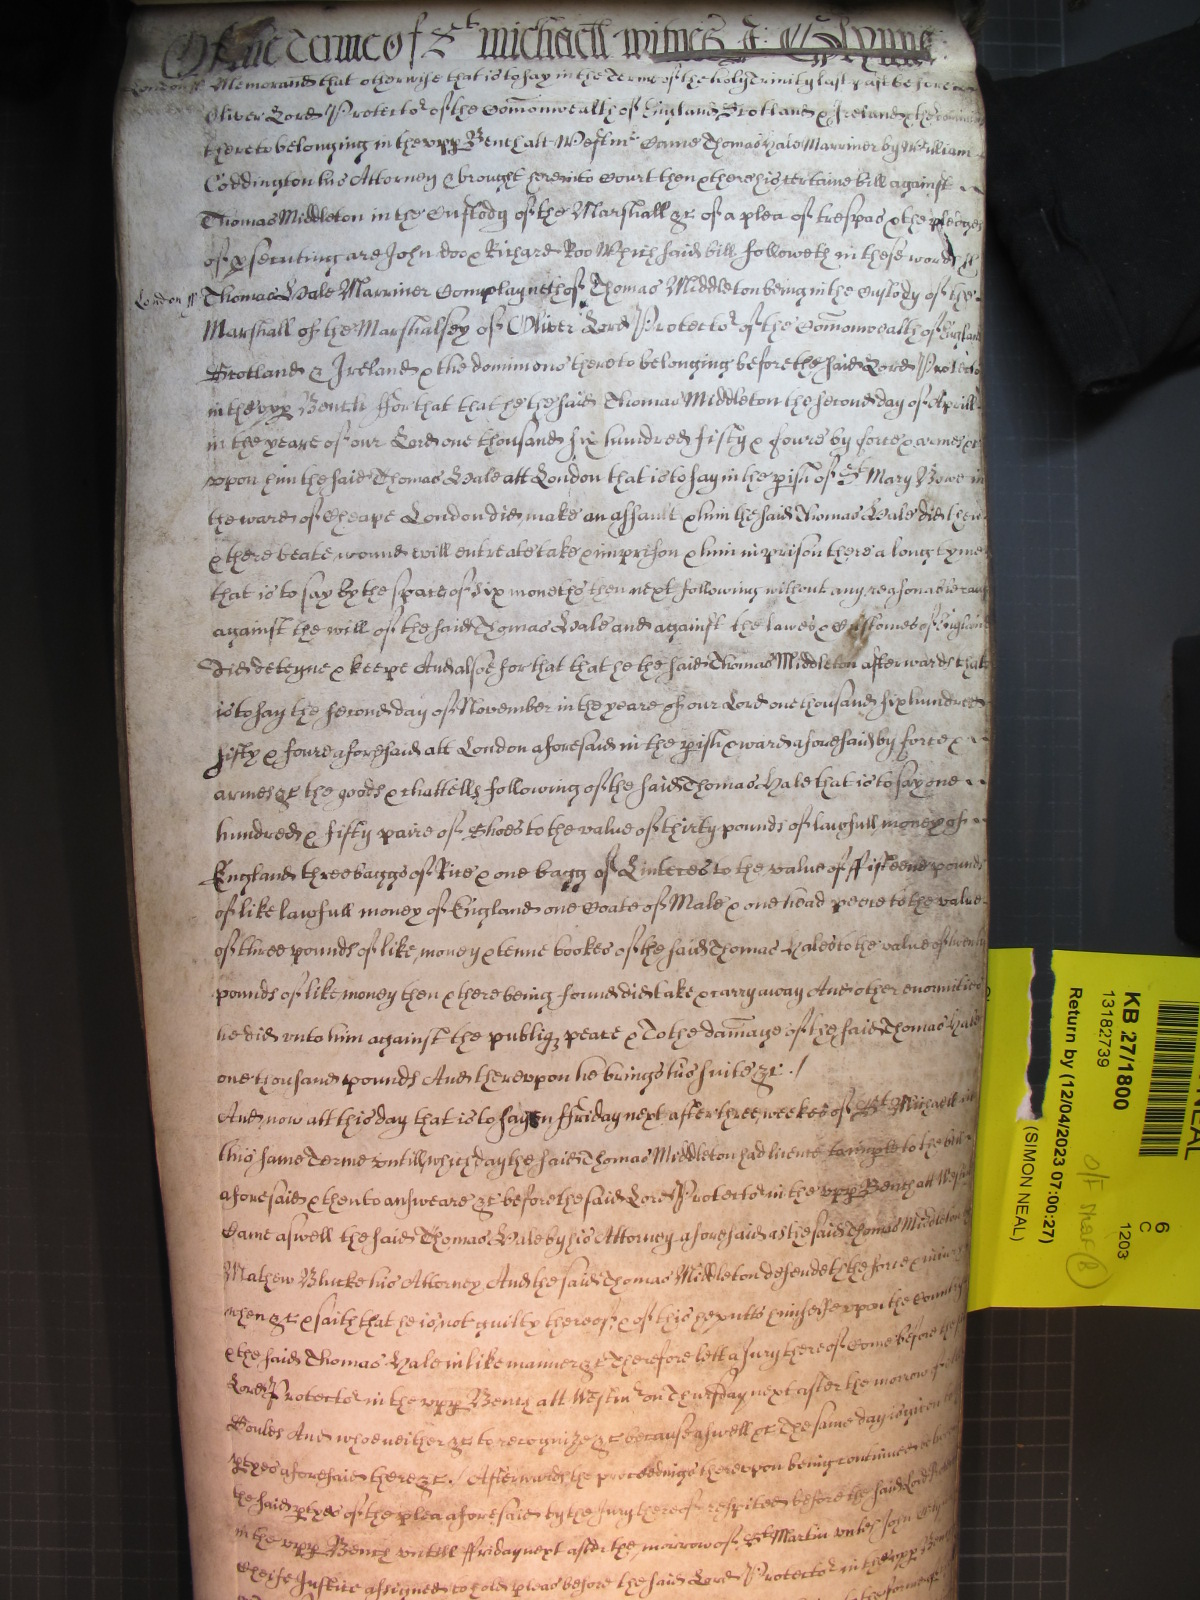 Of the Terme of St michaell witnes J: Glynne
London ss Memorand that otherwise that is to say in the Terme of the holy Trinity last past before
Oliver Lord Protector of the Comonwealth of England Scotland & Ireland & the
thereto belonging in the upp Bench att Westmr Came Thomas Vale Marriner by William
Coddington his Attorney & brought here into Court then & there his certaine bill against
Thomas Middleton in the Custody of the Marshall &c of a plea of trespas & the pledges
of psecuting are John doo & Richard Roo Which said bill followeth in these words ss
London ss Thomas Vale Marriner Complayneth of Thomas Middleton being in the Custody of the
Marshall of the Marshalsey of Oliver Lord Protector of the Comonwealth of England
Scotland & Ireland & the dominions thereto belonging before the said Lord Protector
in the upp Bench ffor that that he the said Thomas Middleton the second day of Aprill
in the yeare of our Lord one thousand six hundred fifty & foure by force & armes &c
upon him the said Thomas Vale att London that is to say in the pish of St Mary Bowe in
the ward of Cheape London did make an assault & him the said Thomas Vale did then
& there beate wound evill entreate take & imprison & him in prison there a long tyme
that is to say by the space of six moneths then next following without any reasonable cause
against the will of the said Thomas Vale and against the lawes & Customes of England
did deteyne & keepe And alsoe for that that he the said Thomas Middleton afterwards that
is to say the second day of November in the yeare of our Lord one thousand six hundred
fifty & foure aforesaid att London aforesaid in the pish & ward aforesaid by force &
armes &c the goods & chattells following of the said Thomas Vale that is to say one
hundred & fifty paire of Shoes to the value of thirty pounds of lawfull money of
England three baggs of Rice & one bagg of Quinces to the value of ffifteene pounds
of like lawfull money of England one Coate of Male & one head peece to the value
of three pounds of like money & tenne bookes of the said Thomas Vales to the value of twenty
pounds of like money then & there being found did take & carry away And other enormities
he did unto him against the publiq peace & To the damage of the said Thomas Vale
one thousand pounds And thereupon he brings his suite &c ./
And now att this day that is to say on ffriday next after three weekes of St Michaell in
this same Terme untill which day the said Thomas Middleton had licence to imple to the bill
aforesaid & then to answeare &c before the said Lord Protector in the upp Bench att Westmr
Came aswell the said Thomas Vale by his Attorney aforesaid as the said Thomas Middleton by
Mathew Blucke his Attorney And the said Thomas Middleton defendeth the force & iniury
when &c & saith that he is not guilty thereof & of this he putts himselfe upon the Country
& the said Thomas Vale in like manner &c Therefore lett a Jury thereof come before the
Lord Protector in the upp Bench att Westmr on Thursday next after the morrow of All
Soules And who neither &c to recognize &c because aswell &c The same day is given to
ptyes aforesaid there &c ./ Afterwards the proceedings thereupon being continued between
the said ptyes of the plea aforesaid by the Jury thereof respited before the said Lord Protector
in the upp Bench untill ffriday next after the morrow of St Martin unles John Glynn
Cheife Justice assigned to hold pleas before the said Lord Protector in the upp Bench
NEAL
KB 27/1800
13182739
Return by (12/04/2023 07:00:27)
(SIMON NEAL)
6
C
1203